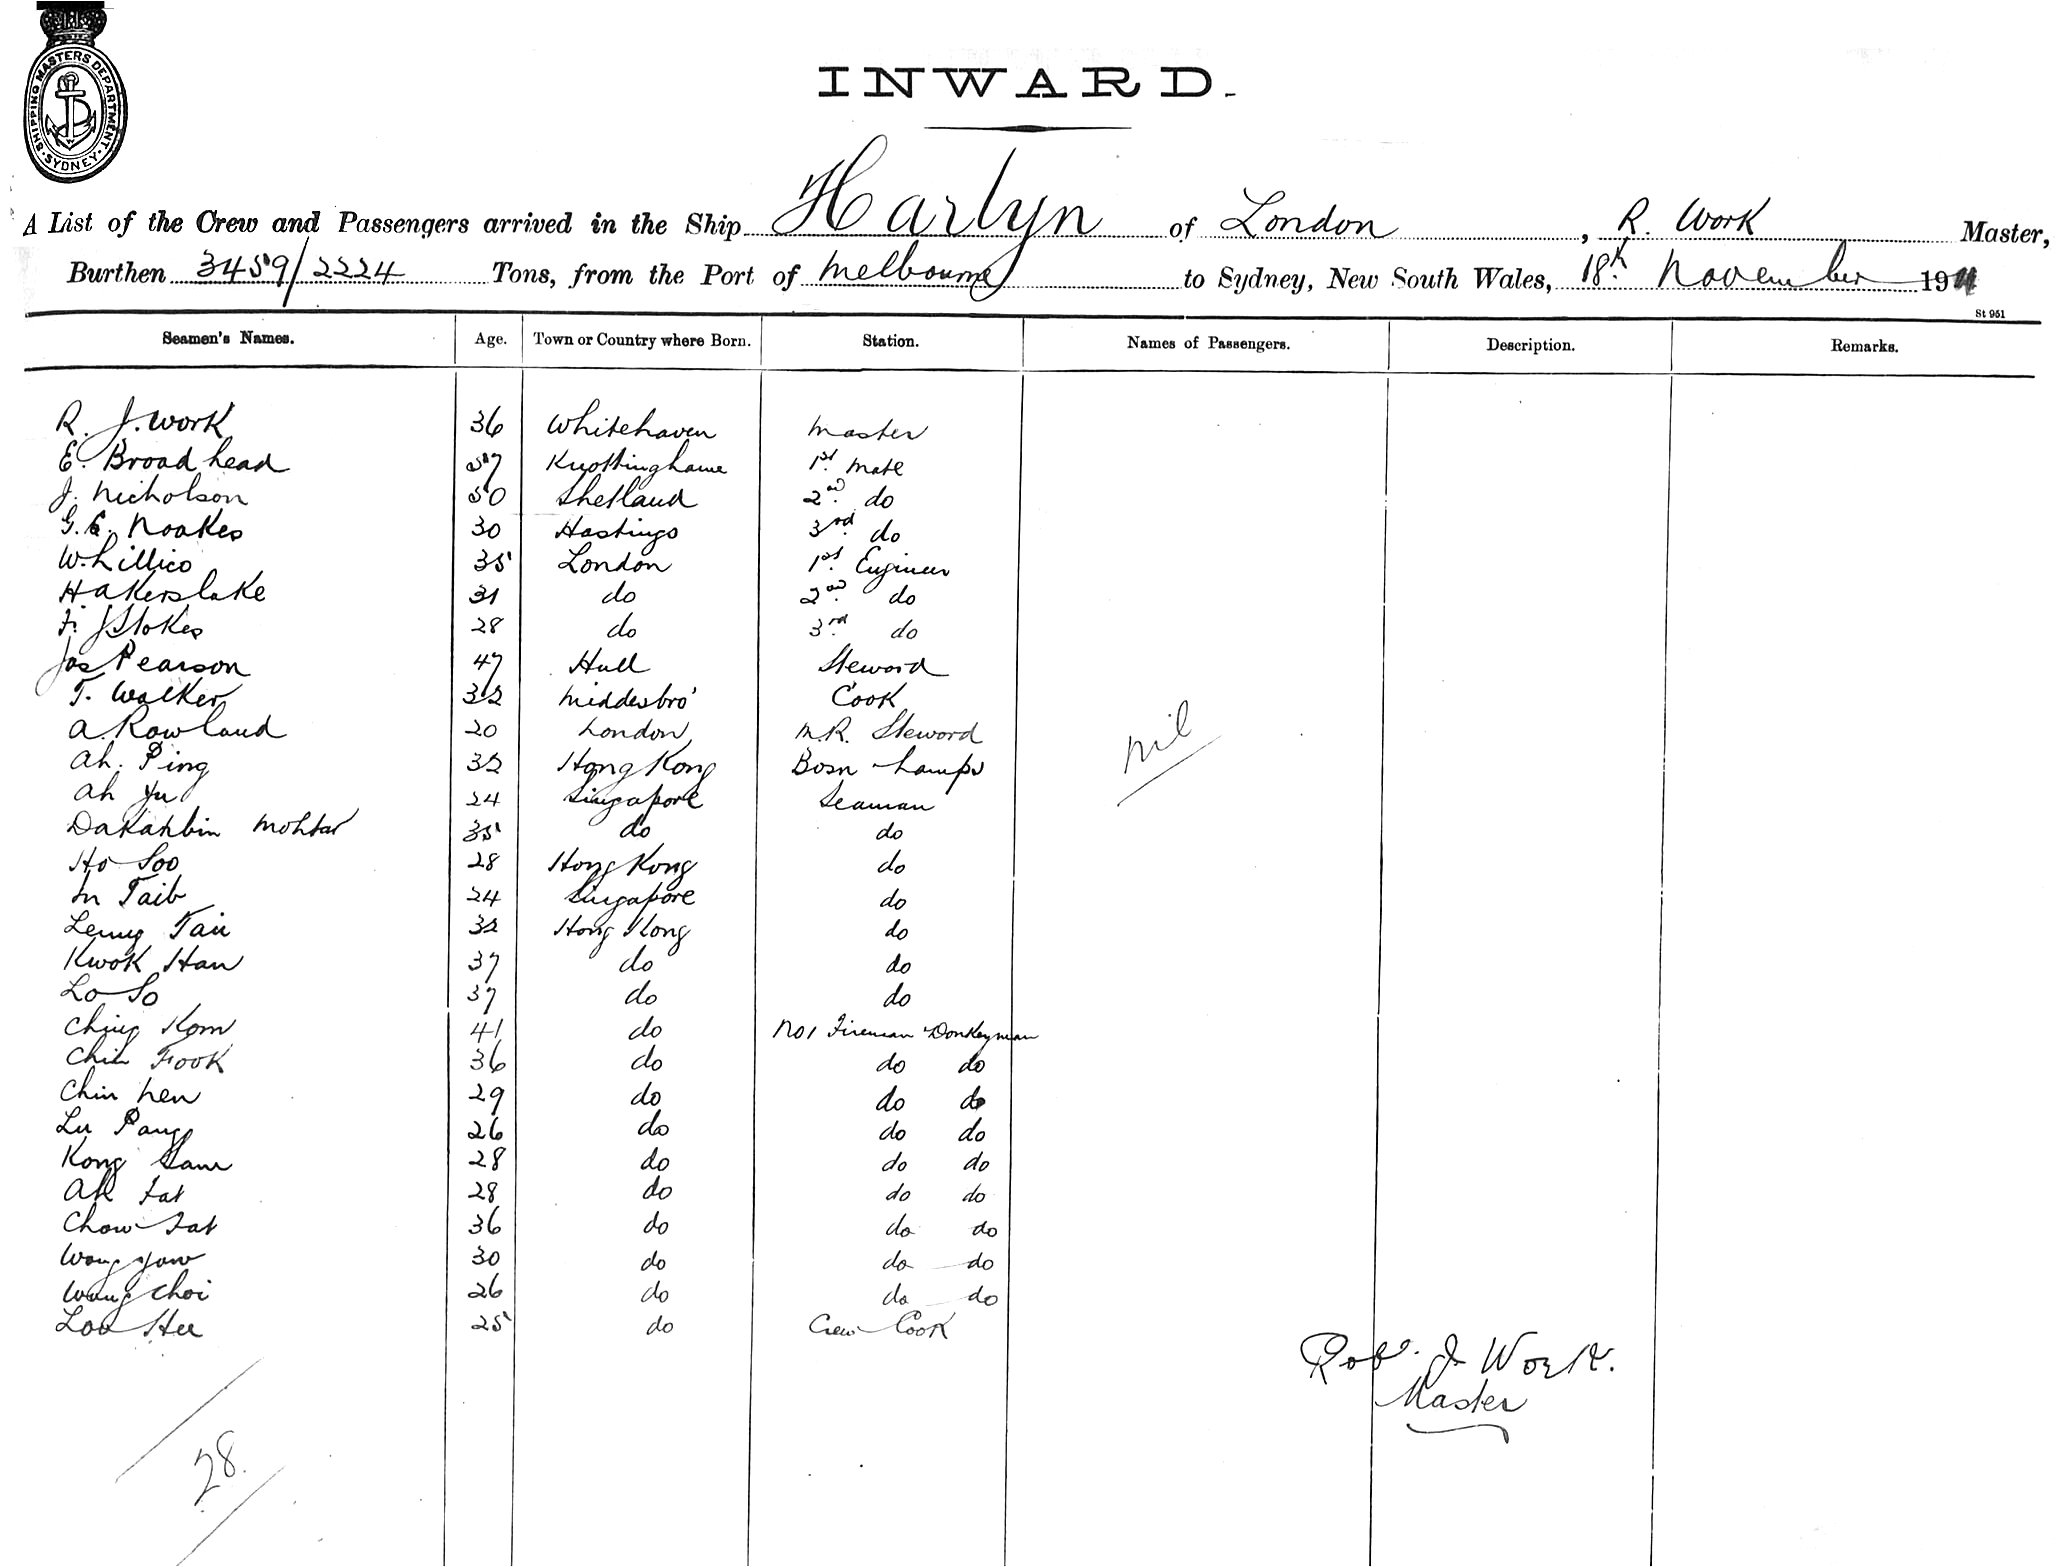 SHIPPING MASTERS DEPARTMENT SYDNEY
INWARD.
A List of the Crew and Passengers arrived in the Ship Harlyn of London, R. Work Master,
Burthen 3459/2224 Tons, from the Port of Melbourne to Sydney, New South Wales, 18th November 1911
St 951
Seamen's Names. Age. Town or Country where Born. Station. Names of Passengers. Description. Remarks.
R. J. Work 36 Whitehaven Master
E. Broadhead 57 Knottinghame 1st Mate
J. Nicholson 50 Shetland 2nd do
G. E. Noakes 30 Hastings 3rd do
W. Lillico 35 London 1st Engineer
H Akerslake 31 do 2nd do
F. J Stokes 28 do 3rd do
Jos Pearson 47 Hull Steword
T. Walker 32 Middesbro' Cook
A. Rowland 20 London M.R. Steword
Ah. Ping 32 Hong Kong Bosn & Lamps
Ah Yu 24 Singapore Seaman
Dakahbin Mohtar 35 do do
Ho Soo 28 Hong Kong do
In Taib 24 Singapore do
Leung Tair 32 Hong Kong do
Kwok Han 37 do do
Lo So 37 do do
Ching Kom 41 do No 1 Fireman & Donkeyman
Chin Fook 36 do do do
Chin Len 29 do do do
Lu Pang 26 do do do
Kong Sam 28 do do do
Ah Fat 28 do do do
Chow Fat 36 do do do
Wong Yow 30 do do do
Wong Choi 26 do do do
Loo Hee 25 do Crew Cook
nil
Robt. J Work.
Master
28.